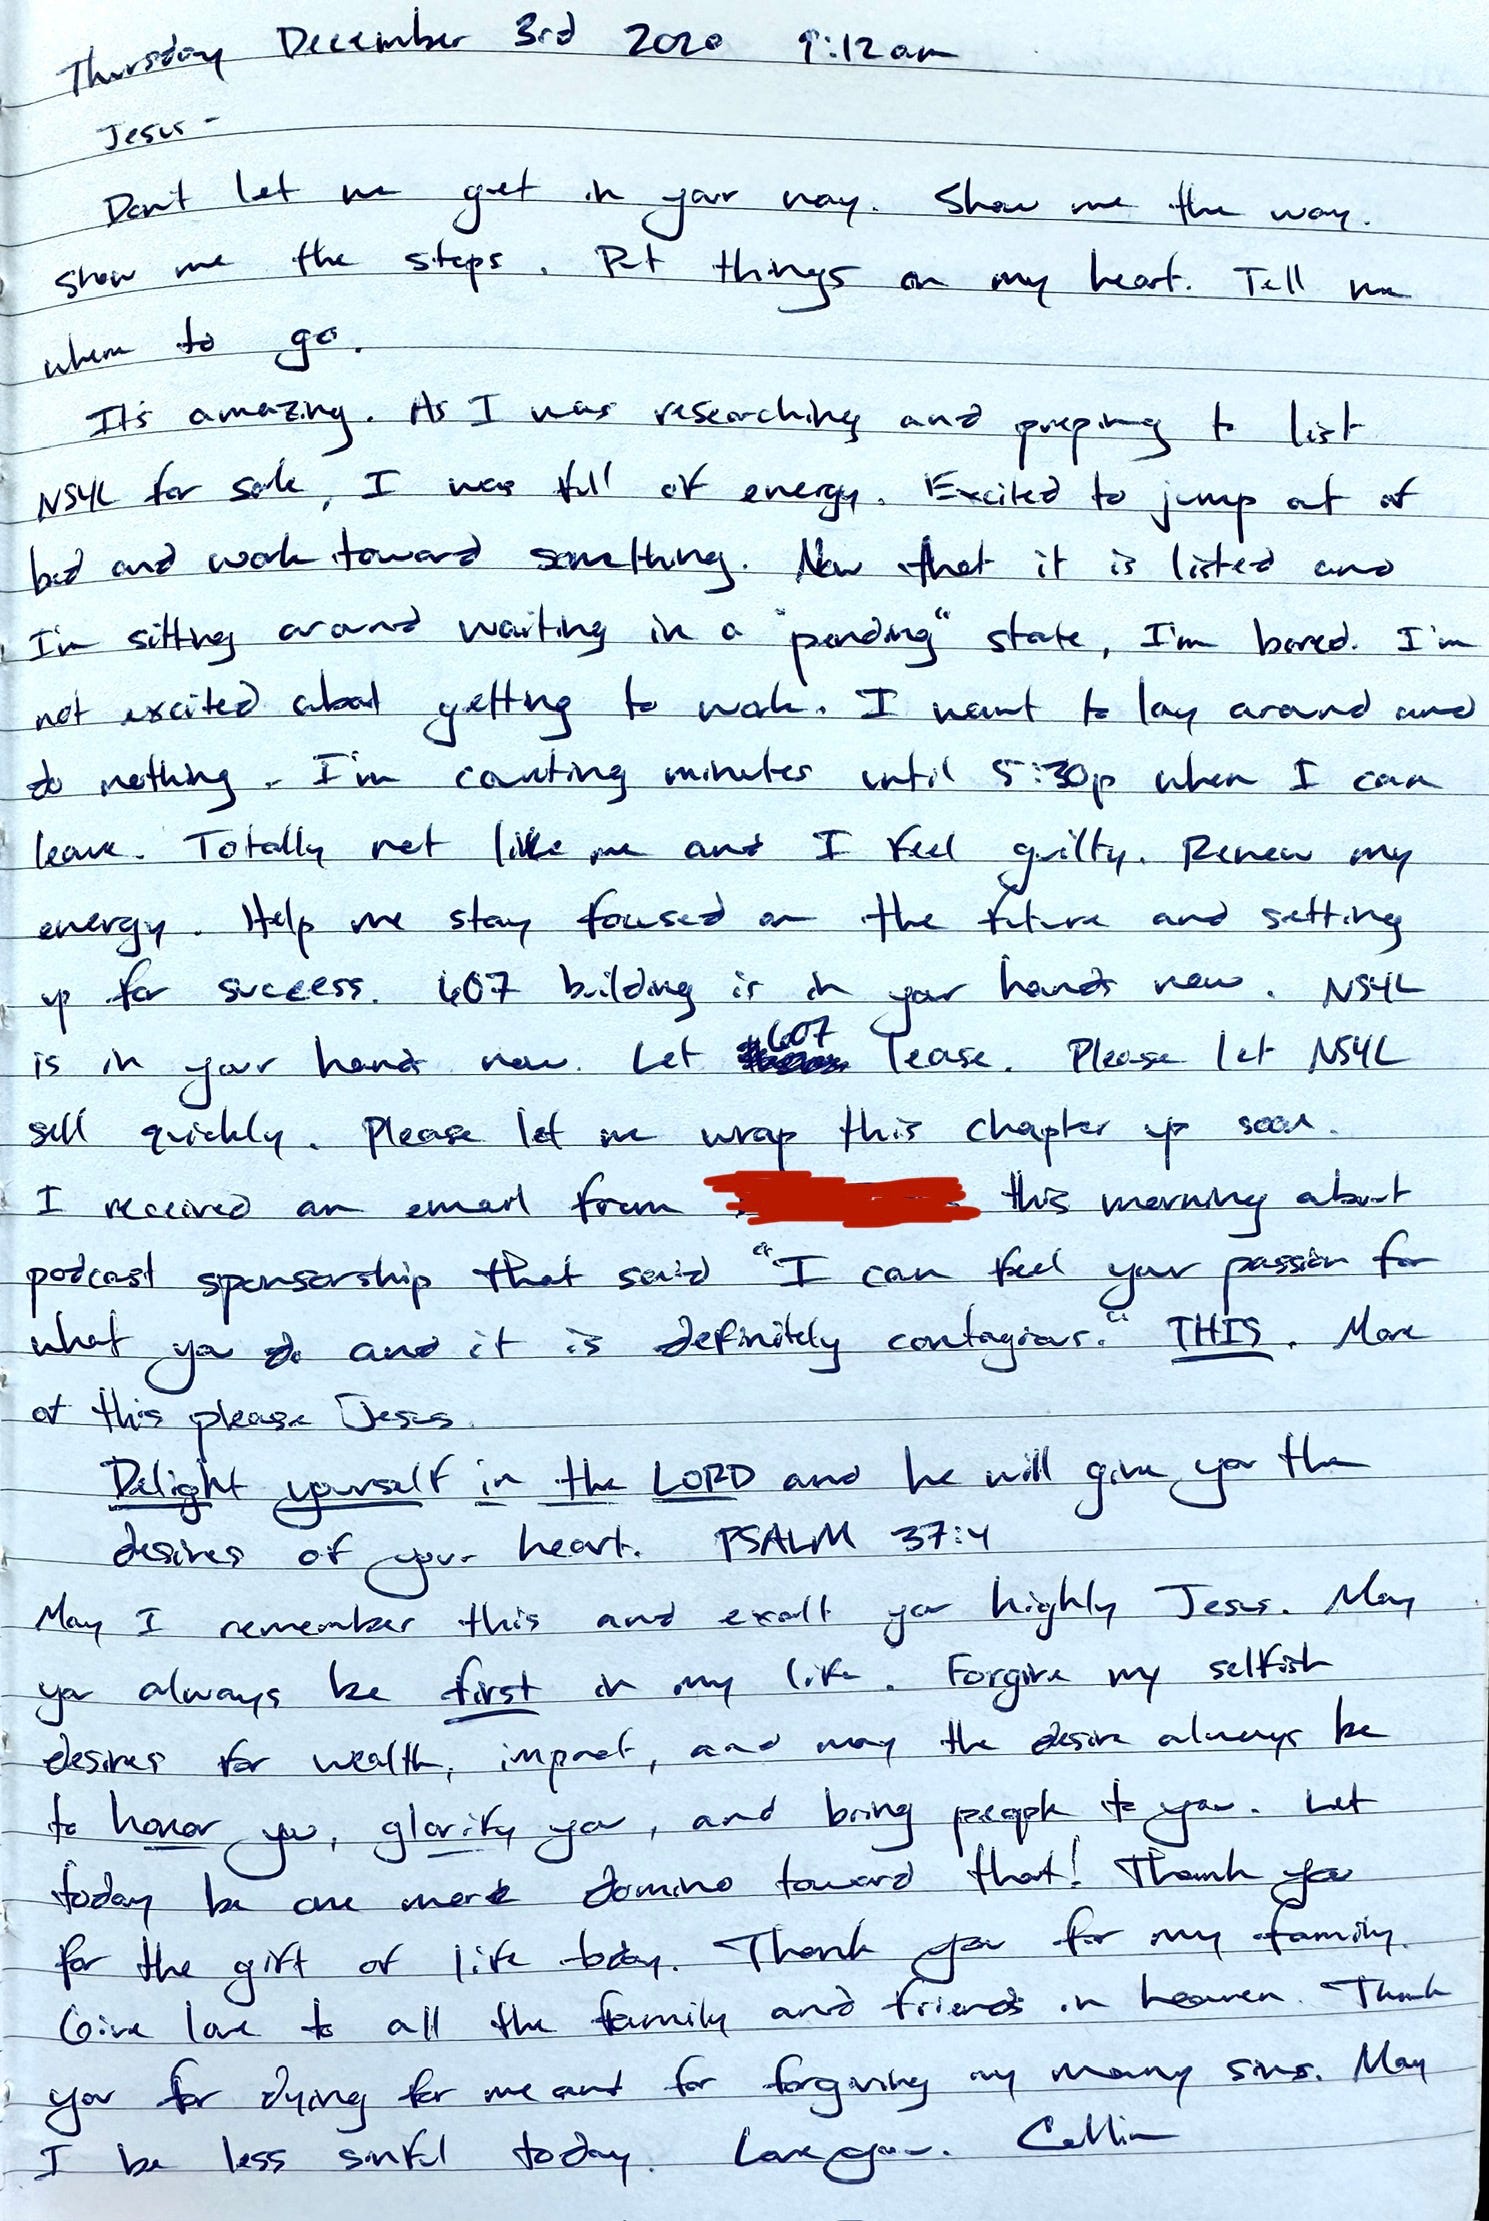 Thursday December 3rd 2020 9:12am
Jesus -
Don't let me get in your way. Show me the way.
Show me the steps. Put things on my heart. Tell me
where to go.
It's amazing. As I was researching and preping to list
NSYL for sale, I was full of energy. Excited to jump out of
bed and work toward something. Now that it is listed and
I'm sitting around waiting in a "pending" state, I'm bored. I'm
not excited about getting to work. I want to lay around and
do nothing. I'm counting minutes until 5:30p when I can
leave. Totally not like me and I feel guilty. Renew my
energy. Help me stay focused on the future and setting
up for success. 607 building is in your hands now. NSYL
is in your hands now. Let 607 lease. Please let NSYL
sell quickly. Please let me wrap this chapter up soon.
I received an email from this morning about
podcast sponsorship that said "I can feel your passion for
what you do and it is definitely contagious." THIS. More
of this please Jesus.
Delight yourself in the LORD and he will give you the
desires of your heart. PSALM 37:4
May I remember this and exalt you highly Jesus. May
you always be first in my life. Forgive my selfish
desires for wealth, impact, and may the desire always be
to honor you, glorify you, and bring people to you. Let
today be one more domino toward that! Thank you
for the gift of life today. Thank you for my family.
Give love to all the family and friends in heaven. Thank
you for dying for me and for forgiving my many sins. May
I be less sinful today. Love you. Collin